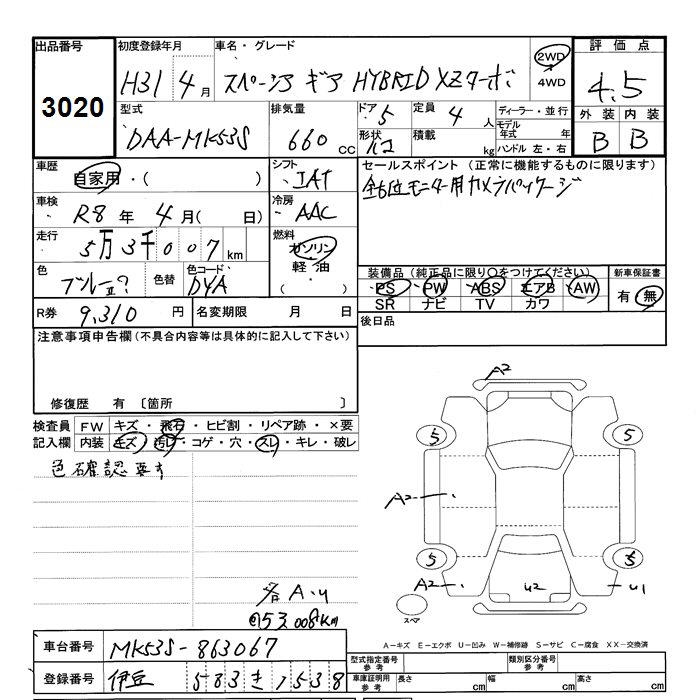 出品番号 初度登録年月 車名・グレード 評価点
3020 H31 4月 スペーシア ギア HYBRID XZターボ 2WD 4WD 4.5
型式 排気量 ドア 5 定員 4人 ディーラー・並行 外装 内装
DAA-MK53S 660cc 形状 積載 kg モデル年式 年 ハンドル 左・右 B B
車歴 自家用・( ) シフト IAT セールスポイント(正常に機能するものに限ります)
車検 R8年 4月( 日) 冷房 AAC
走行 5万3千007km 燃料 ガソリン 軽油 ( )
色 色替 色コード DYA 装備品(純正品に限り○をつけてください) 新車保証書
PS PW ABS エアB AW 有・無
SR ナビ TV カワ
R券 9,310円 名変期限 月 日 後日品
注意事項申告欄(不具合内容等は具体的に記入して下さい)
修復歴 有 〔箇所 〕
検査員記入欄 FW キズ・飛石・ヒビ割・リペア跡・×要
内装 キズ・汚レ・コゲ・穴・スレ・キレ・破レ
色確認要す
各A・U
53008km
A2
5 5
A2
5 5
A2 U2 U1
スペア
A-キズ E-エクボ U-凹み W-補修跡 S-サビ C-腐食 XX-交換済
車台番号 MK53S-863067
登録番号 伊豆 583 き 1538
型式指定番号 参考 類別区分番号 参考
車庫証明用 参考 長さ cm 幅 cm 高さ cm